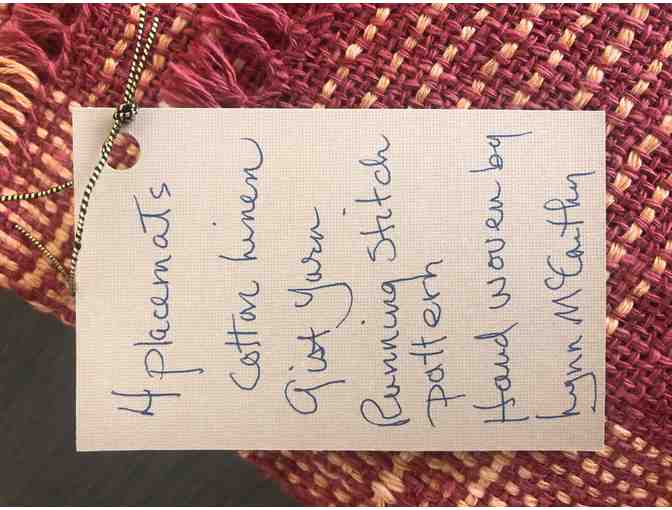 4 placemats
Cotton Linen
Gist Yarn
Running Stitch
pattern
Hand woven by
Lynn McCarthy